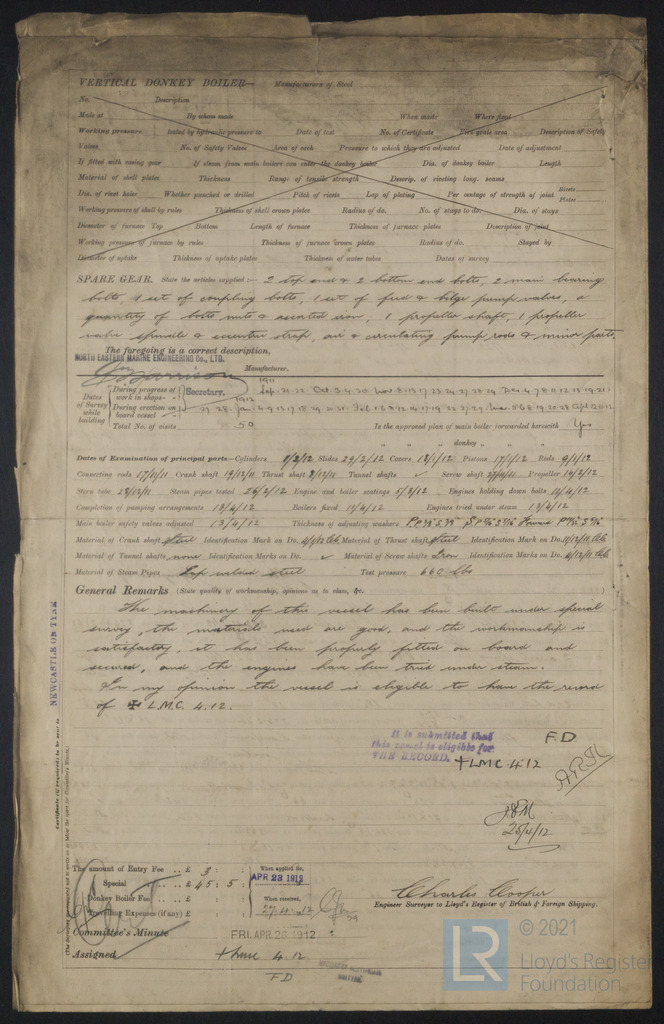 VERTICAL DONKEY BOILER— Manufacturers of Steel
No. Description
Made at By whom made When made Where fixed
Working pressure tested by hydraulic pressure to Date of test No. of Certificate Fire grate area Description of Safety
Valves No. of Safety Valves Area of each Pressure to which they are adjusted Date of adjustment
If fitted with easing gear If steam from main boilers can enter the donkey boiler Dia. of donkey boiler Length
Material of shell plates Thickness Range of tensile strength Descrip. of riveting long. seams
Dia. of rivet holes Whether punched or drilled Pitch of rivets Lap of plating Per centage of strength of joint Rivets Plates
Working pressure of shell by rules Thickness of shell crown plates Radius of do. No. of stays to do. Dia. of stays
Diameter of furnace Top Bottom Length of furnace Thickness of furnace plates Description of joint
Working pressure of furnace by rules Thickness of furnace crown plates Radius of do. Stayed by
Diameter of uptake Thickness of uptake plates Thickness of water tubes Dates of survey
SPARE GEAR. State the articles supplied:— 2 top end & 2 bottom end bolts, 2 main bearing
bolts, 1 set of coupling bolts, 1 set of feed & bilge pump valves, a
quantity of bolts nuts & assorted iron, 1 propeller shaft, 1 propeller
valve spindle & eccentric strap, air & circulating pump rods & minor parts.
The foregoing is a correct description,
NORTH EASTERN MARINE ENGINEERING Co., LTD.
Harrison Manufacturer.
Secretary.
Dates of Survey while building
During progress of work in shops -- 1911
During erection on board vessel --- 1912
Total No. of visits 50 Is the approved plan of main boiler forwarded herewith Yes
" " " donkey " " "
Dates of Examination of principal parts—Cylinders 8/2/12 Slides 29/2/12 Covers 18/1/12 Pistons 17/1/12 Rods 9/1/12
Connecting rods 17/11/11 Crank shaft 19/12/11 Thrust shaft 8/12/11 Tunnel shafts ✓ Screw shaft 27/11/11 Propeller 19/2/12
Stern tube 28/12/11 Steam pipes tested 26/2/12 Engine and boiler seatings 5/3/12 Engines holding down bolts 11/4/12
Completion of pumping arrangements 13/4/12 Boilers fixed 11/4/12 Engines tried under steam 13/4/12
Main boiler safety valves adjusted 13/4/12 Thickness of adjusting washers
Material of Crank shaft Steel Identification Mark on Do. Material of Thrust shaft Steel Identification Mark on Do.
Material of Tunnel shafts none Identification Marks on Do. ✓ Material of Screw shafts Iron Identification Marks on Do.
Material of Steam Pipes Lap welded steel Test pressure 660 lbs
General Remarks (State quality of workmanship, opinions as to class, &c.
The machinery of this vessel has been built under special
survey, the materials used are good, and the workmanship is
satisfactory, it has been properly fitted on board and
secured, and the engines have been tried under steam.
In my opinion the vessel is eligible to have the record
of ✠ L.M.C. 4.12.
NEWCASTLE ON TYNE
It is submitted that
this vessel is eligible for
THE RECORD. +LMC 4.12 F.D
25/4/12
The amount of Entry Fee .. £ 3 : : When applied for,
Special .. £ 45 : 5 : APR 23 1912
Donkey Boiler Fee .. £ : : When received,
Travelling Expenses (if any) £ : :
Charles Cooper
Engineer Surveyor to Lloyd's Register of British & Foreign Shipping.
Committee's Minute FRI. APR. 26 1912
Assigned + LMC 4.12
FD
LR © 2021
Lloyd's Register
Foundation